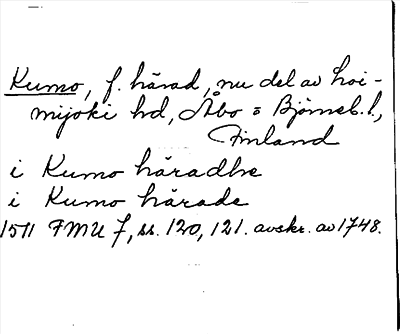 Kumo, f. härad, nu del av Loi-
mijoki hd, Åbo = Björneb. l.,
Finland
i Kumo häradhe
i Kumo härade
1511 FMU 7, ss. 120, 121. avskr. av 1748.